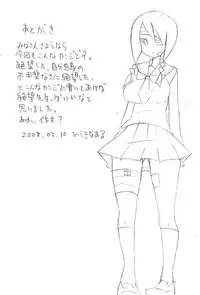 あとがき
みなさんさようなら
今回もこんなカンジです。
絶望した、自分自身の
不甲斐なさに絶望した、
とこんなカンジに書いておけば
絶望先生ぽいかなと
思いました。
あれ、作文?
2008.02.10